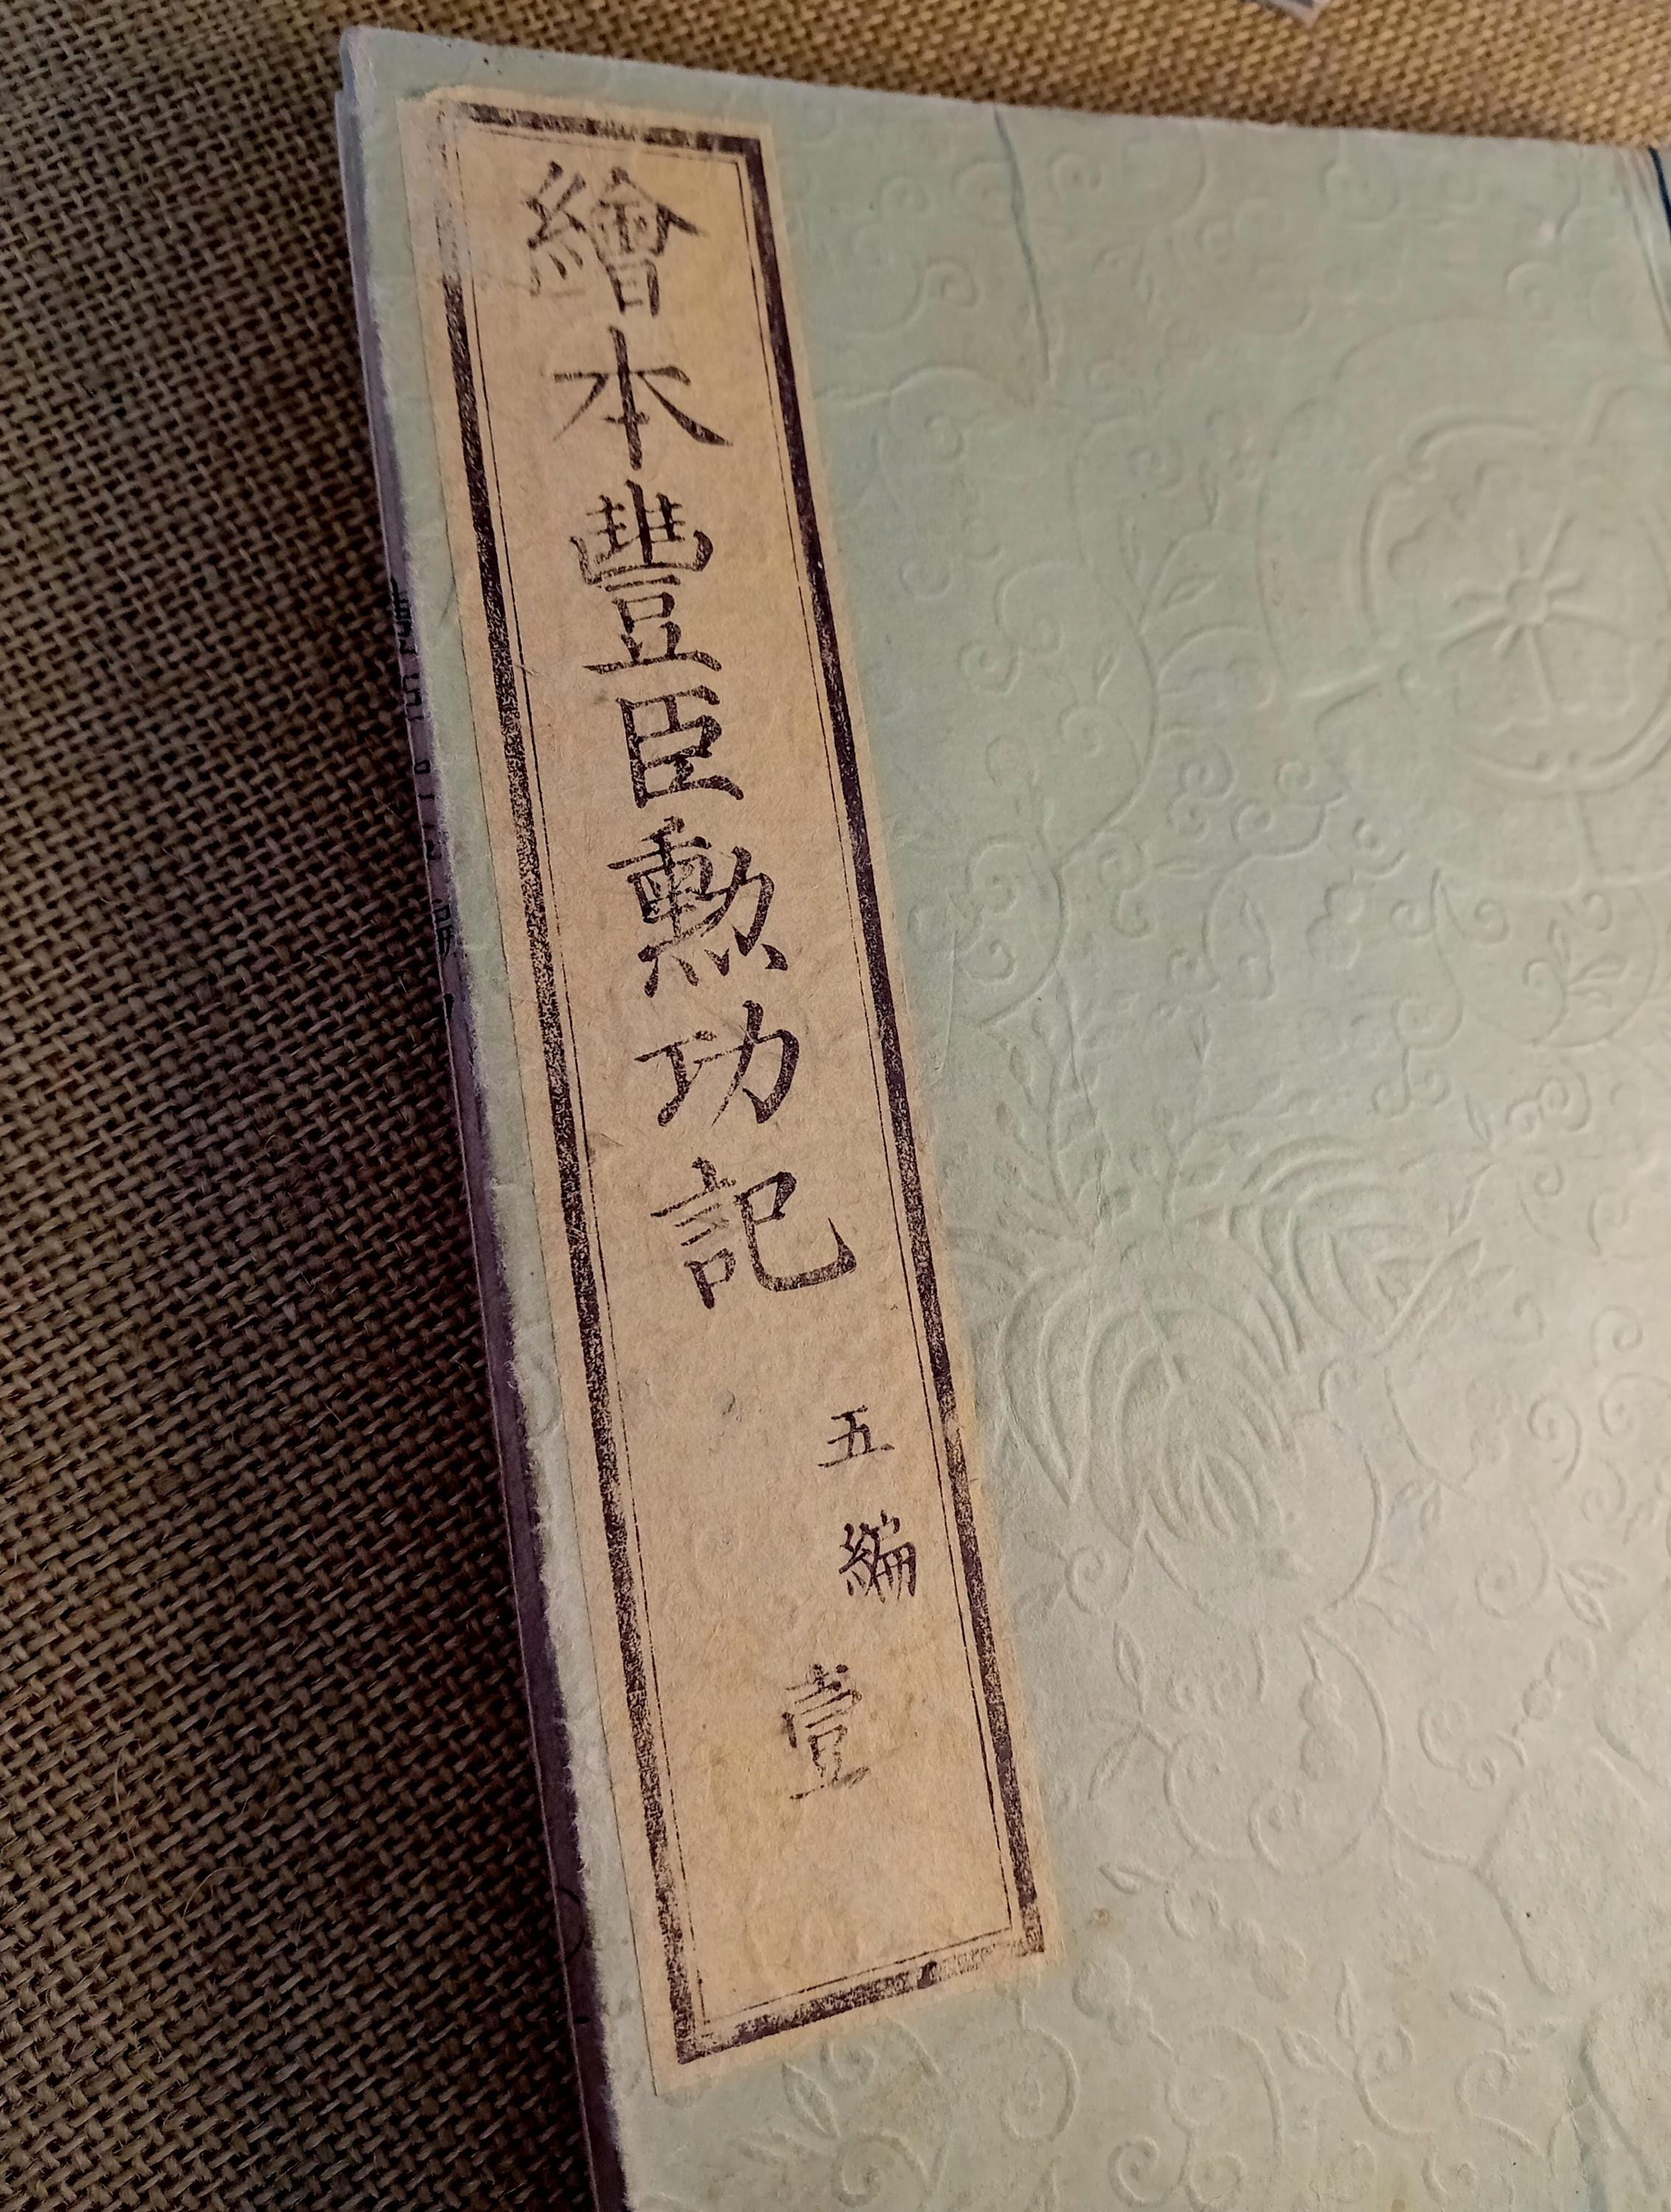 繪本豐臣勲功記
五編
壹